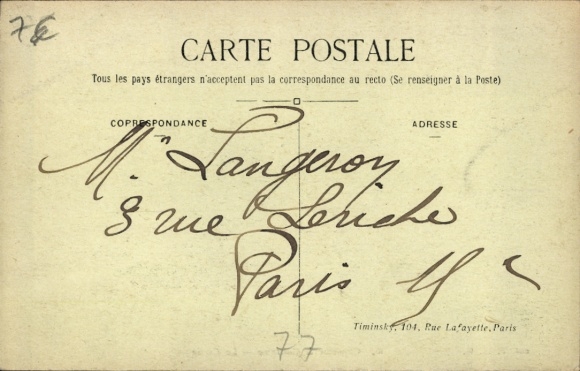 CARTE POSTALE
Tous les pays étrangers n'acceptent pas la correspondance au recto (Se renseigner à la Poste)
CORRESPONDANCE
ADRESSE
Langeron
3 rue Leriche
Paris 15e
Timinsky, 104, Rue Lafayette, Paris
77